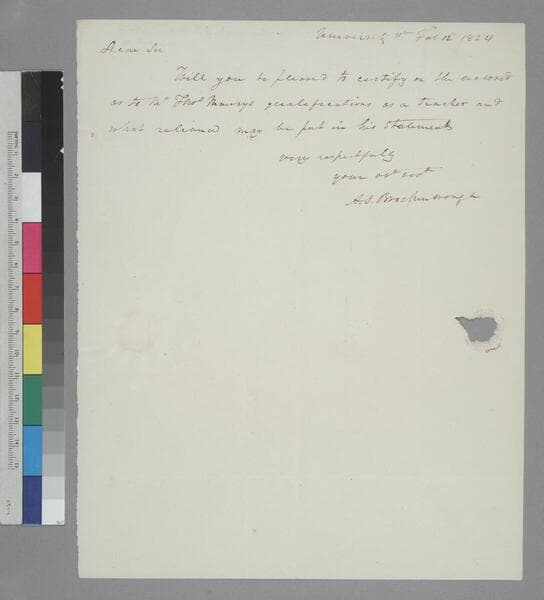 University Va Feb 12 1824
Dear Sir
Will you be pleased to certify on the enclosed
as to Mr Thos Maurys qualifications as a teacher and
what relianed may be put in his Statements
very respectfully
your obt svt
A. S. Brockenbrough